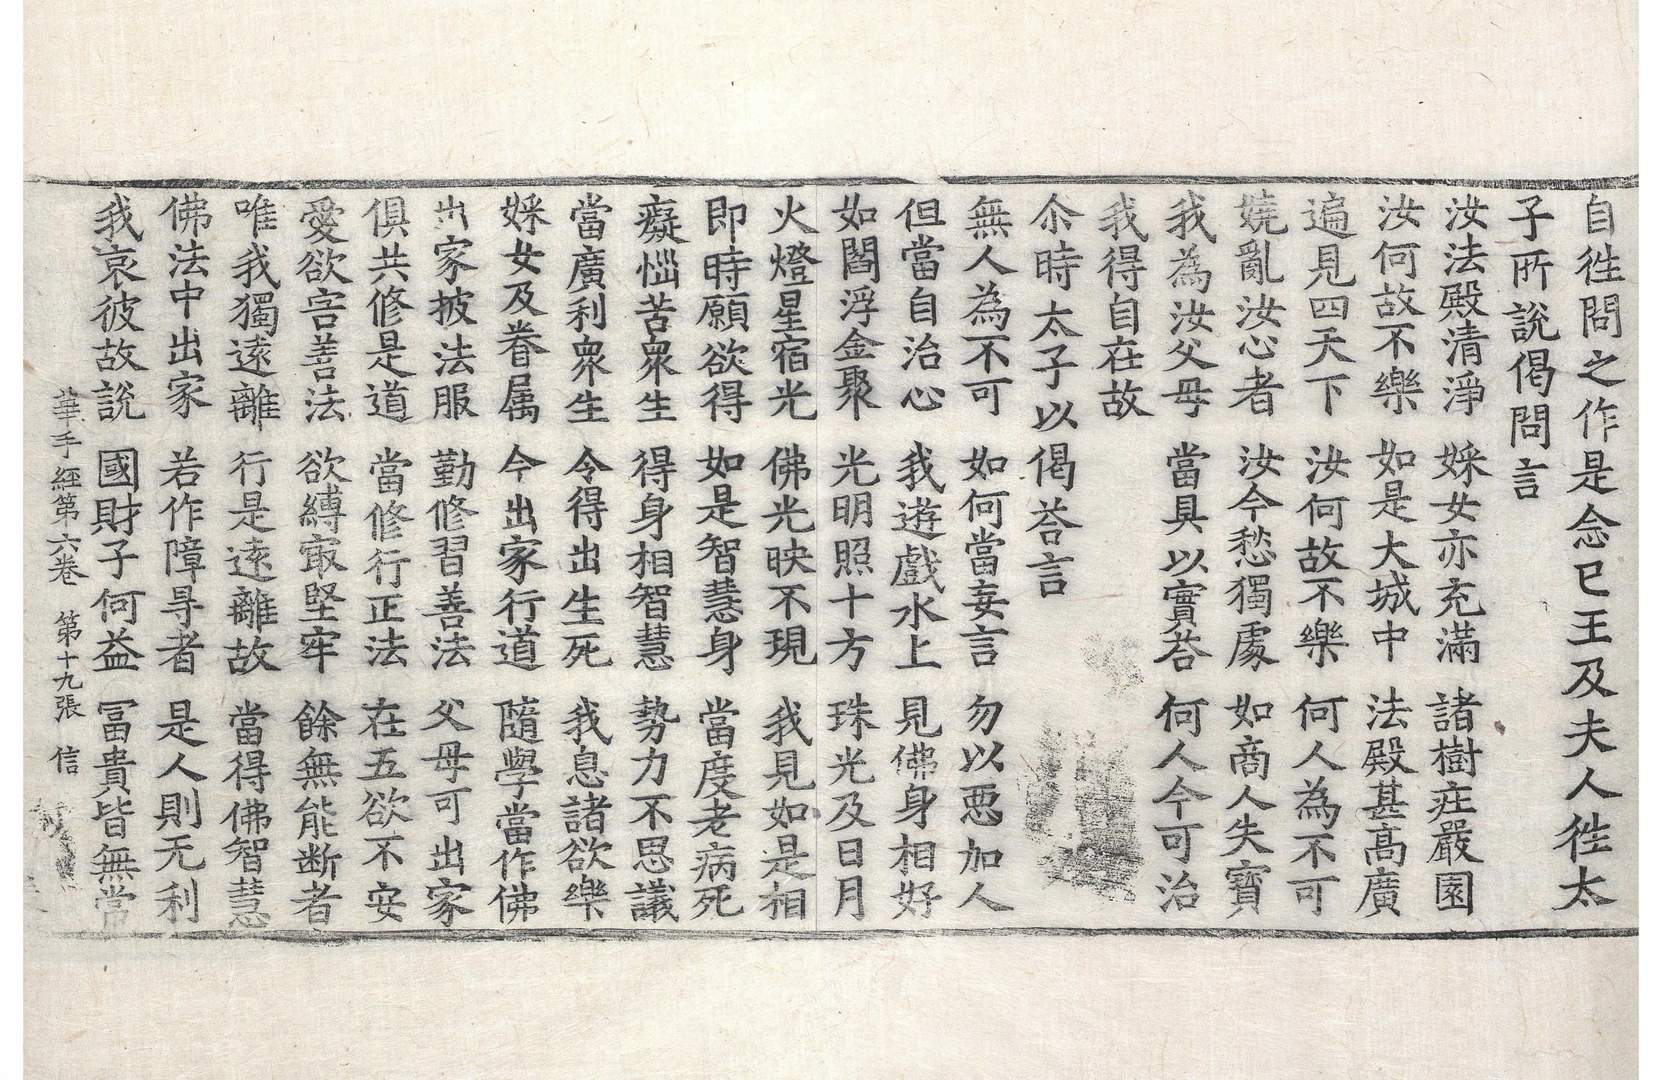 自徃問之作是念已王及夫人徃太
子所說偈問言
汝法殿清淨 婇女亦充滿 諸樹庄嚴園
汝何故不樂 如是大城中 法殿甚髙廣
遍見四天下 汝何故不樂 何人為不可
嬈亂汝心者 汝今愁獨處 如商人失寶
我為汝父母 當具以實荅 何人今可治
我得自在故
尒時太子以偈荅言
無人為不可 如何當妄言 勿以惡加人
但當自治心 我遊戲水上 見佛身相好
如閻浮金聚 光明照十方 珠光及日月
火燈星宿光 佛光映不現 我見如是相
即時願欲得 如是智慧身 當度老病死
癡惱苦衆生 得身相智慧 勢力不思議
當廣利衆生 令得出生死 我息諸欲樂
婇女及眷属 今出家行道 隨學當作佛
出家披法服 勤修習善法 父母可出家
俱共修是道 當修行正法 在五欲不安
愛欲害善法 欲縛㝡堅牢 餘無能断者
唯我獨遠離 行是遠離故 當得佛智慧
佛法中出家 若作障㝵者 是人則无利
我哀彼故說 國財子何益 冨貴皆無常
華手經第六卷 第十九張 信